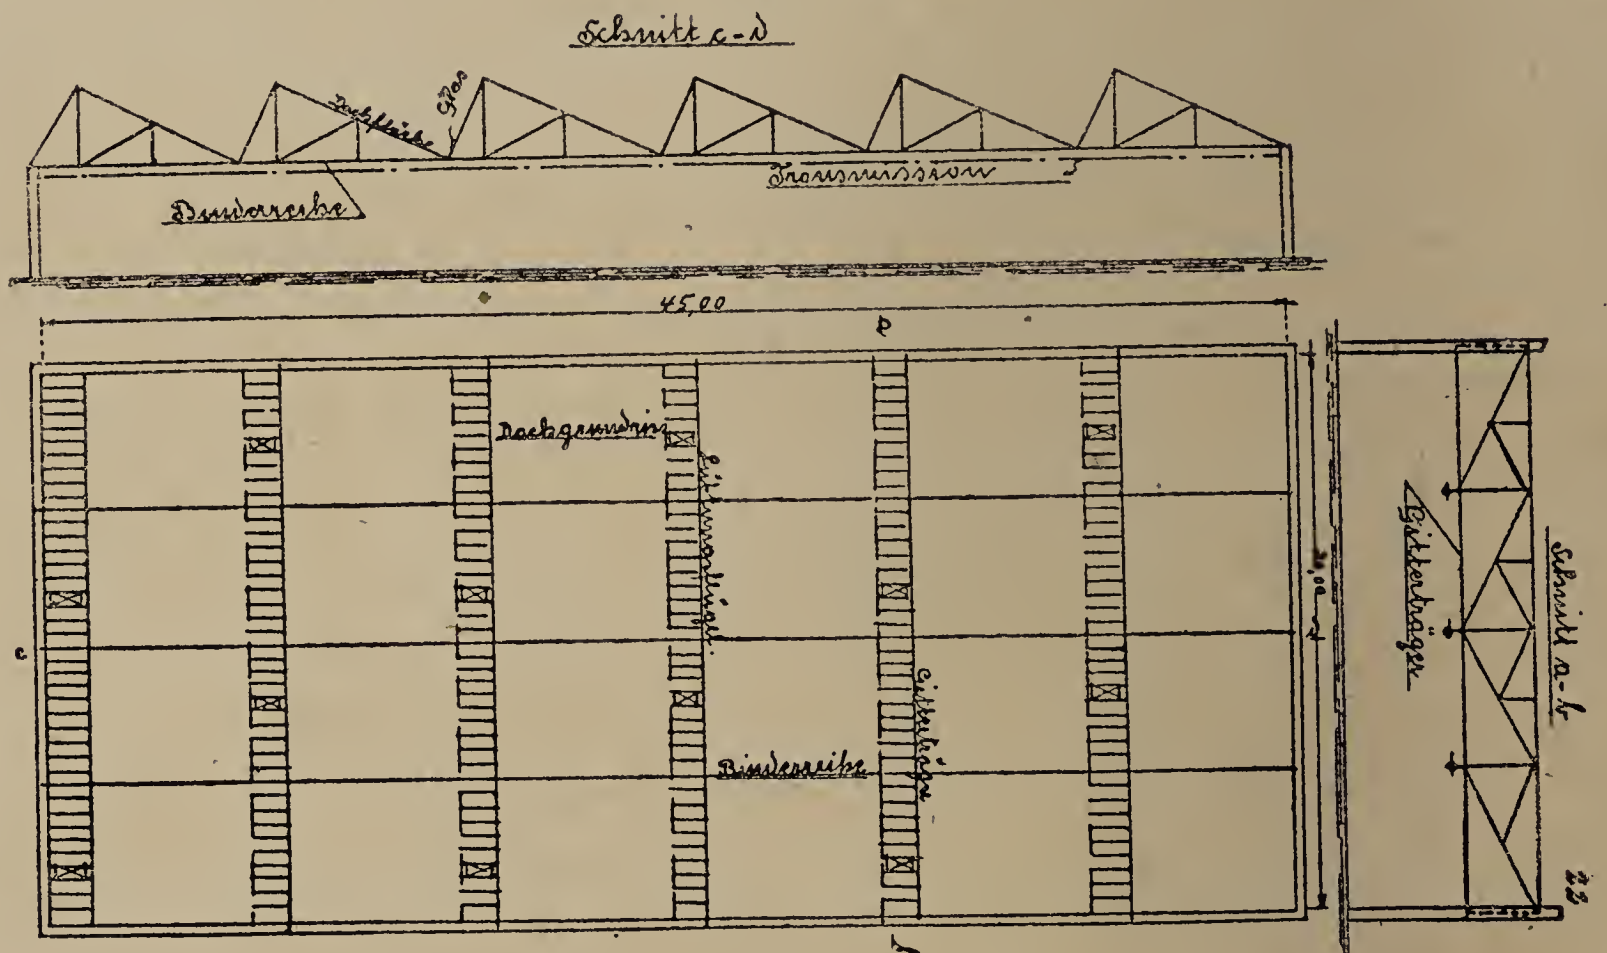 Schnitt c-d
Dachfläche
Glas
Transmission
Binderreihe
45,00
Dachgrundriss
c
Gitterträger
Binderreihe
20,00
Gitterträger
Schnitt a-b
22